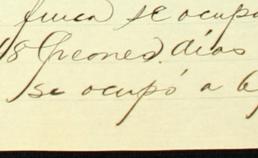 finca se ocupó
48 peones. días
se ocupó a 6